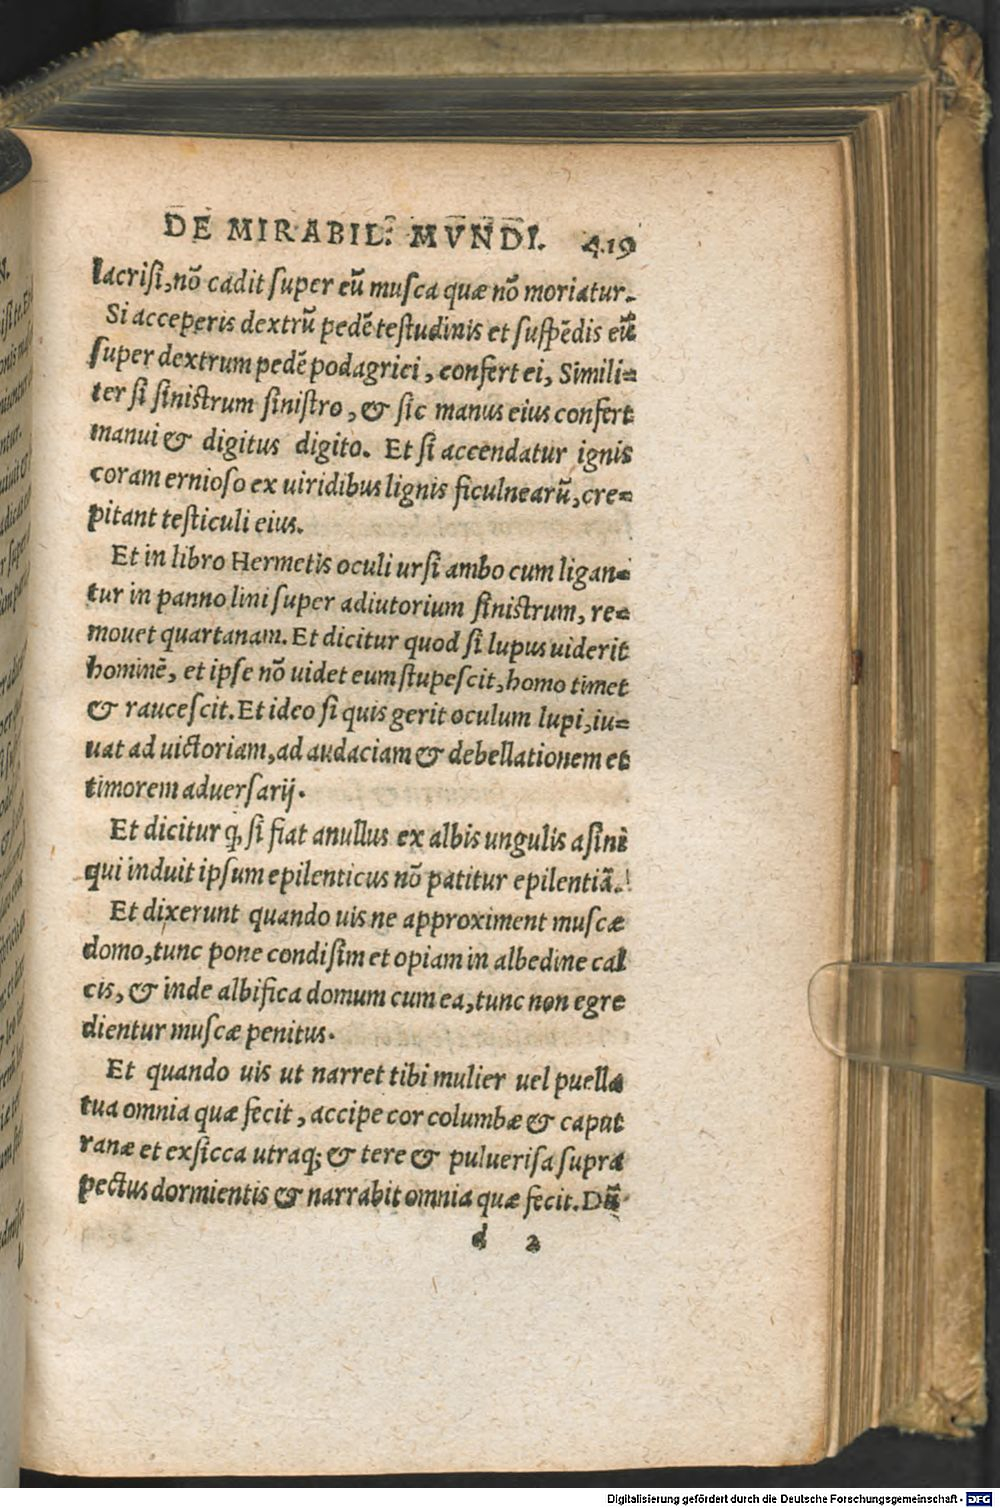 DE MIRABIL. MVNDI. 419
lacrisi, nõ cadit super eũ musca quæ nõ moriatur.
Si acceperis dextrũ pedẽ testudinis et suspẽdis eũ
super dextrum pedẽ podagrici, confert ei, Simili=
ter si sinistrum sinistro, & sic manus eius confert
manui & digitus digito. Et si accendatur ignis
coram ernioso ex uiridibus lignis ficulnearũ, cre=
pitant testiculi eius.
Et in libro Hermetis oculi ursi ambo cum ligan=
tur in panno lini super adiutorium sinistrum, re=
mouet quartanam. Et dicitur quod si lupus uiderit
hominẽ, et ipse nõ uidet eum stupescit, homo timet
& raucescit. Et ideo si quis gerit oculum lupi, iu=
uat ad uictoriam, ad audaciam & debellationem et
timorem aduersarij.
Et dicitur ꝙ si fiat anullus ex albis ungulis asini
qui induit ipsum epilenticus nõ patitur epilentiã.
Et dixerunt quando uis ne approximent muscæ
domo, tunc pone condisim et opiam in albedine cal
cis, & inde albifica domum cum ea, tunc non egre
dientur muscæ penitus.
Et quando uis ut narret tibi mulier uel puella
tua omnia quæ fecit, accipe cor columbæ & caput
ranæ et exsicca utraq; & tere & puluerisa supra
pectus dormientis & narrabit omnia quæ fecit. Dũ
d 2
Digitalisierung gefördert durch die Deutsche Forschungsgemeinschaft - DFG